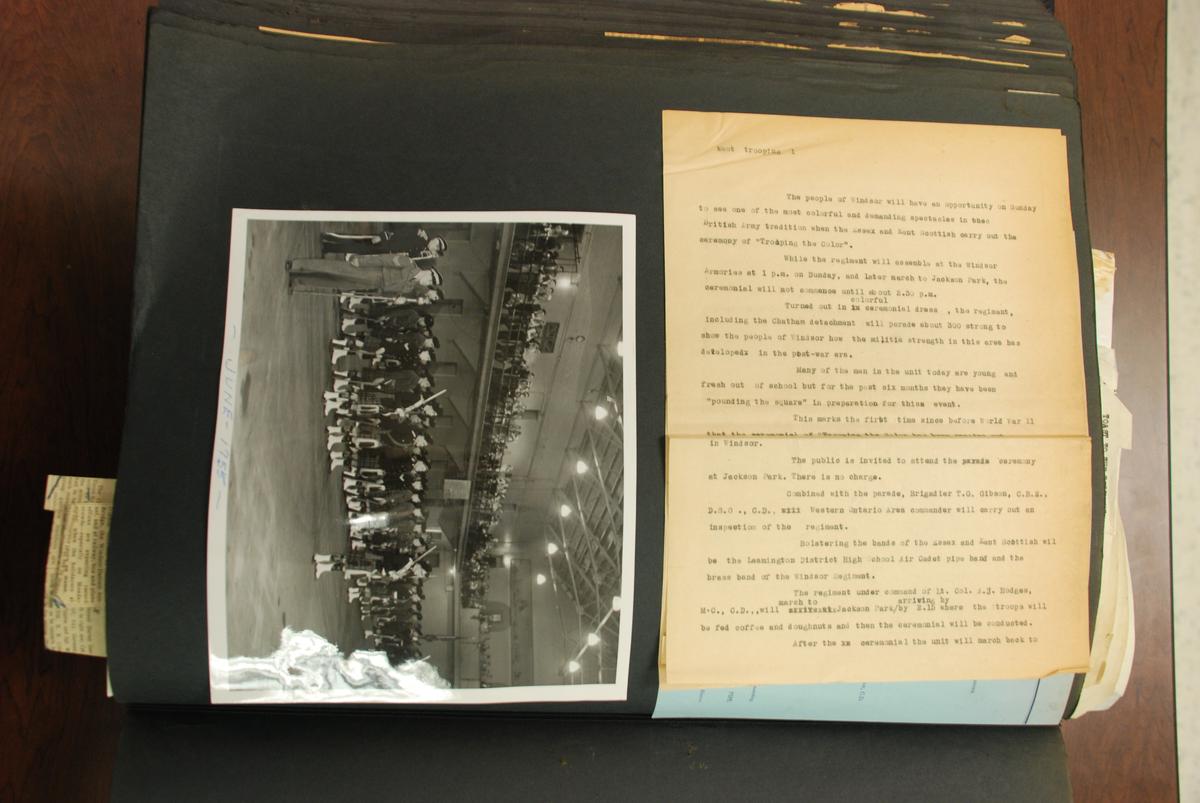 kent trooping 1
The people of Windsor will have an opportunity on Sunday
to see one of the most colorful and demanding spectacles in thee
British Army tradition when the Essex and Kent Scottish carry out the
ceremony of "Trooping the Color".
While the regiment will assemble at the Windsor
Armories at 1 p.m. on Sunday, and later march to Jackson Park, the
ceremonial will not commence until about 2.30 p.m.
colorful
Turned out in ix ceremonial dress , the regiment,
including the Chatham detachment will parade about 300 strong to
show the people of Windsor how the militia strength in this area has
developedx in the post-war era.
Many of the men in the unit today are young and
fresh out of school but for the past six months they have been
"pounding the square" in preparation for thiss event.
This marks the first time since before World War II
that the ceremonial of "Trooping the Color has been
in Windsor.
The public is invited to attend the parade ceremony
at Jackson Park. There is no charge.
Combined with the parade, Brigadier T.G. Gibson, C.B.E.,
D.S.O ., C.D., Western Ontario Area commander will carry out an
inspection of the regiment.
Bolstering the bands of the Essex and Kent Scottish wil
be the Leamington District High School Air Cadet pipe band and the
brass band of the Windsor Regiment.
The regiment under command of Lt. Col. A.J. Hodges,
march to arriving by
M.C., C.D.,,will Jackson Park/by 2.15 where the troops will
be fed coffee and doughnuts and then the ceremonial will be conducted.
After the xx ceremonial the unit will march back to
- JUNE - 1955 -